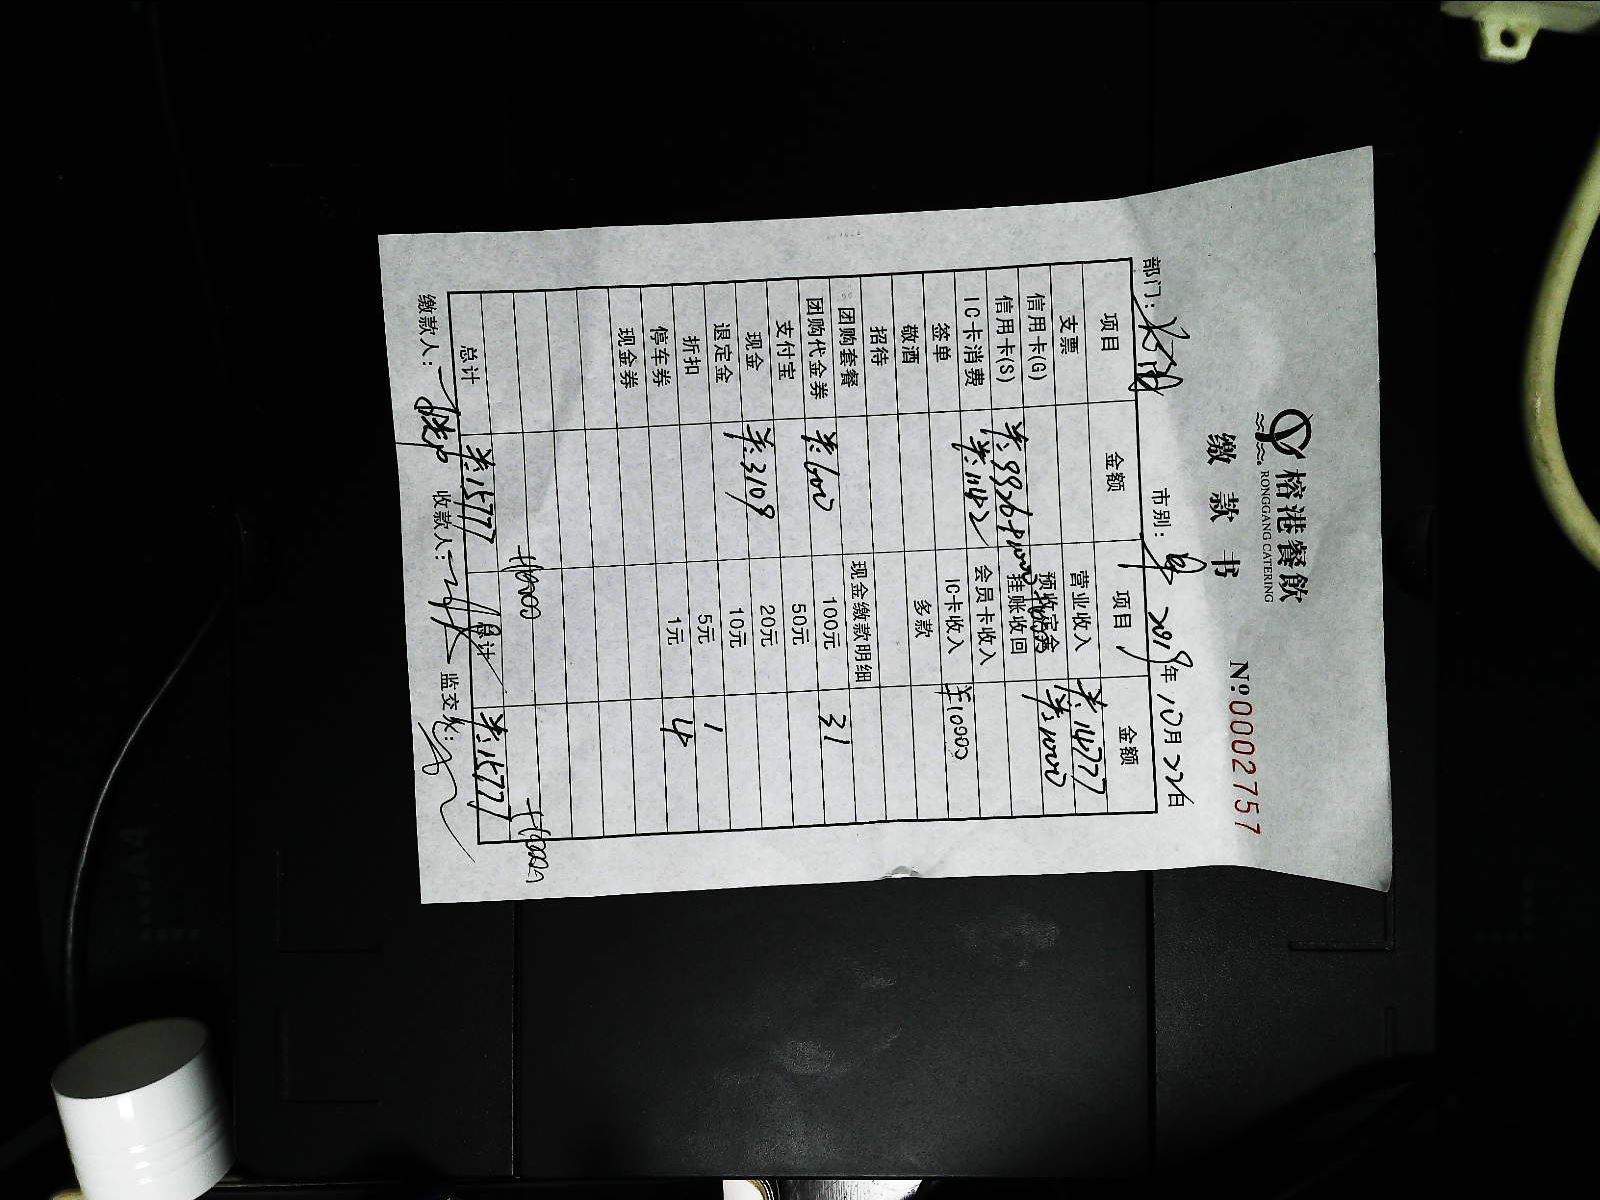 榕港餐飲
RONGGANG CATERING
缴款书
Nº0002757
部门: 市别: 2019年10月22日
项目 金额 项目 金额
支票 营业收入 羊:14777
信用卡(G) 预收定金 羊:1000
信用卡(S) 羊:9926+1000 挂账收回
IC卡消费 羊:1142 会员卡收入
签单 IC卡收入 羊10000
敬酒 多款
招待
团购套餐 现金缴款明细
团购代金券 羊:600 100元 31
支付宝 50元
现金 羊:3109 20元
退定金 10元
折扣 5元 1
停车券 1元 4
现金券
+10000 +10000
总计 羊:15777 总计 羊:15777
缴款人: 收款人: 监交人: